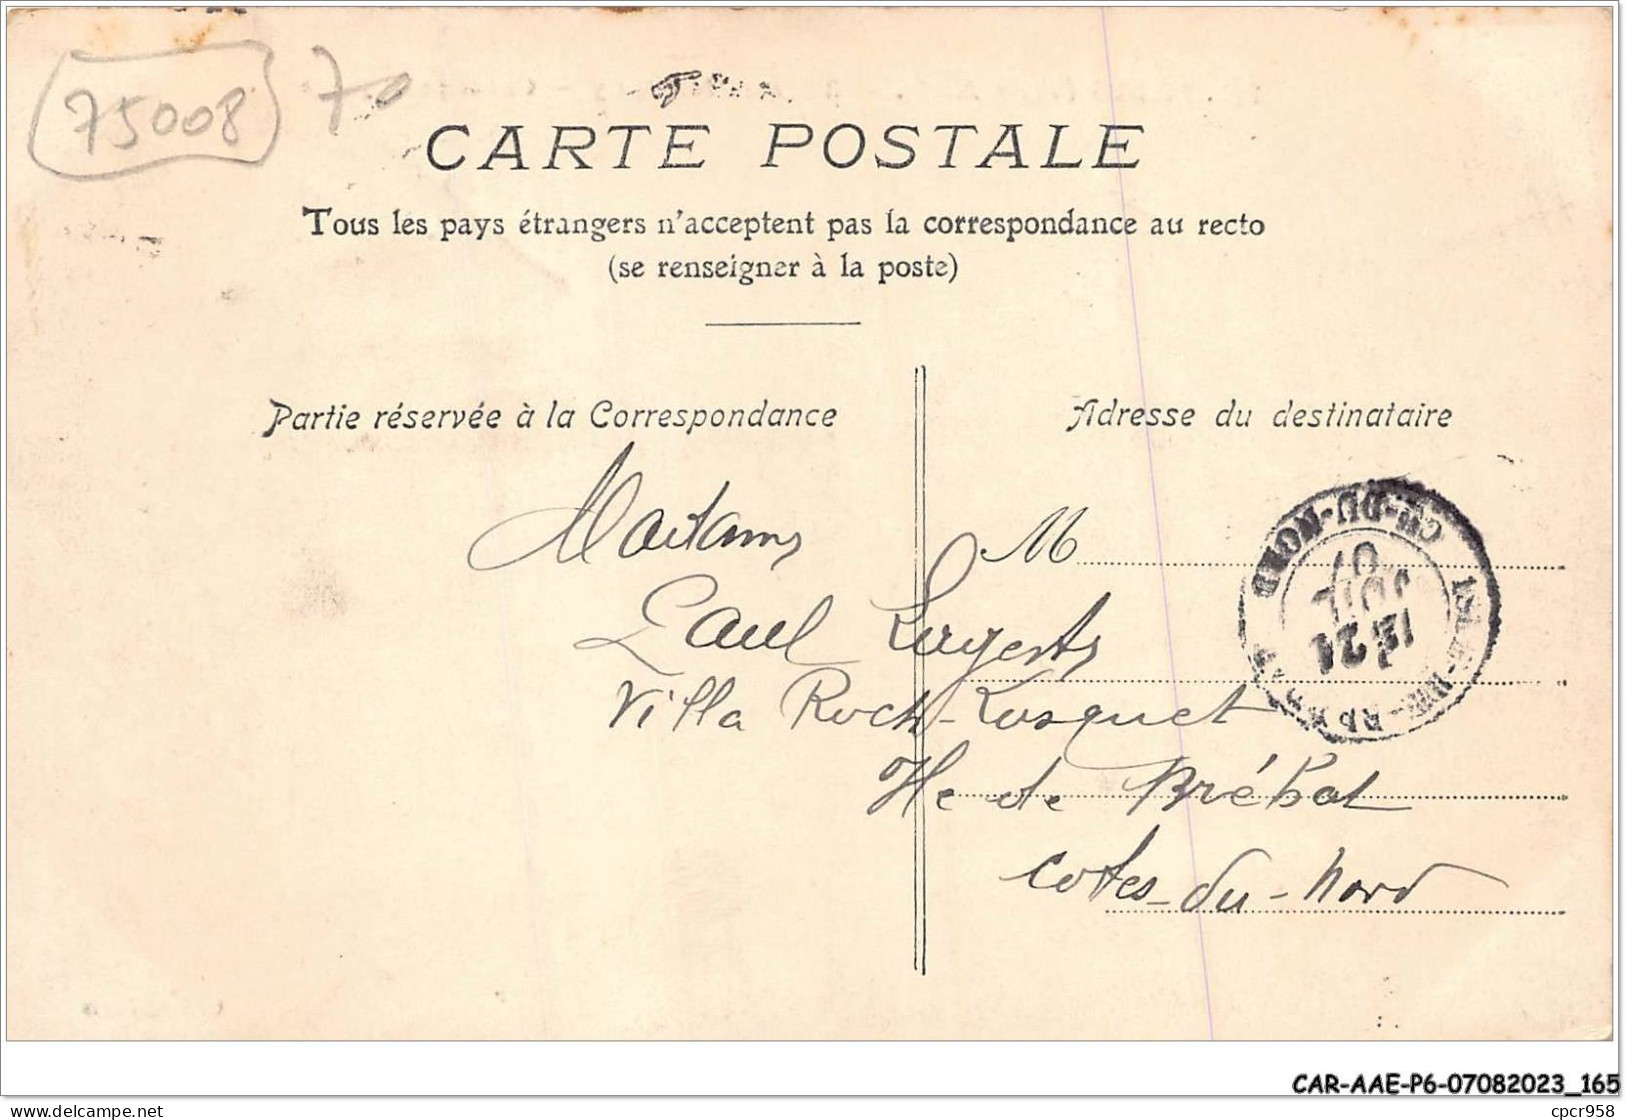 75008 70
CARTE POSTALE
Tous les pays étrangers n'acceptent pas la correspondance au recto
(se renseigner à la poste)
Partie réservée à la Correspondance
Adresse du destinataire
M
Madame
Paul
Villa Roch-
Ile de Bréhat
Cotes-du-Nord
CES-DU-NORD
21
JUIL
07
CAR-AAE-P6-07082023_165
delcampe.net
cpcr958